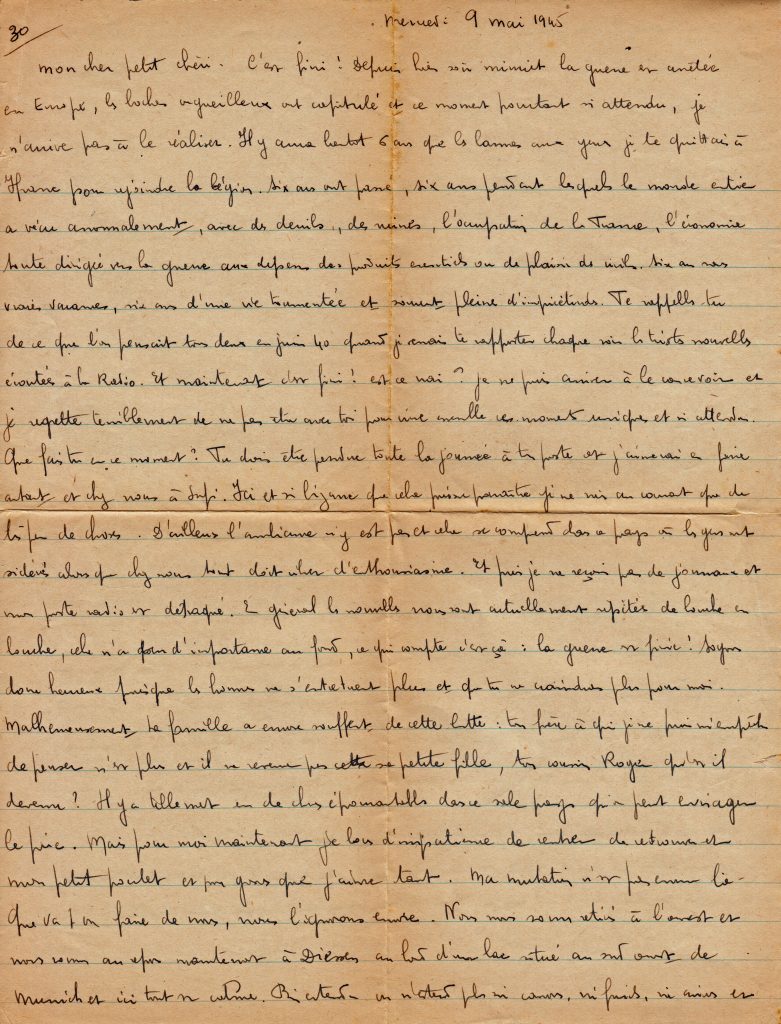 30
Mercredi 9 mai 1945
mon cher petit chéri. C'est fini ! Depuis hier soir minuit la guerre est arrêtée
en Europe, les boches orgueilleux ont capitulé et ce moment pourtant si attendu, je
n'arrive pas à le réaliser. Il y aura bientôt 6 ans que les larmes aux yeux je te quittais à
pour rejoindre la Légion. Six ans ont passé, six ans pendant lesquels le monde entier
a vécu anormalement, avec des deuils, des ruines, l'occupation de la France, l'économie
toute dirigée vers la guerre aux dépens des produits essentiels ou de plaisir des civils. Six ans sans
vraies vacances, six ans d'une vie tourmentée et souvent pleine d'inquiétudes. Te rappelles-tu
de ce que l'on pensait tous deux en juin 40 quand je venais te rapporter chaque soir les tristes nouvelles
écoutées à la Radio. Et maintenant c'est fini ! est ce vrai ? je ne puis arriver à le concevoir et
je regrette terriblement de ne pas être avec toi pour vivre ensemble ces moments uniques et si attendus.
Que fais tu en ce moment ? Tu dois être pendue toute la journée à ton poste et j'aimerai en faire
autant et chez nous à Ici et si bizarre que cela puisse paraître je ne suis au courant que de
très peu de choses. D'ailleurs l'ambiance n'y est pas et cela se comprend dans ce pays où les gens sont
sidérés alors que chez nous tout doit vibrer d'enthousiasme. Et puis je ne reçois pas de journaux et
mon poste radio est détraqué. En général les nouvelles nous sont actuellement répétées de bouche en
bouche, cela n'a pas d'importance au fond, ce qui compte c'est çà : la guerre est finie ! Soyons
donc heureux puisque les hommes ne s'entretuent plus et que tu ne craindras plus pour moi.
Malheureusement ta famille a encore souffert de cette lutte : ton frère à qui je ne puis m'empêcher
de penser n'est plus et il ne verra pas sa petite fille, ton cousin Roger qu'est il
devenu ? Il y a tellement eu de choses épouvantables dans ce sale pays qu'on peut envisager
le pire. Mais pour moi maintenant je bous d'impatience de rentrer de retrouver et
mon petit poulet et mon gosse que j'aime tant. Ma mutation n'est pas encore là.
Que va t on faire de nous, nous l'ignorons encore. Nous nous sommes retirés à l'ouest et
nous sommes au repos maintenant à Diessen au bord d'un lac situé au sud ouest de
Munich et ici tout est calme. Bien entendu on n'entend plus ni canons, ni fusils, ni avions et